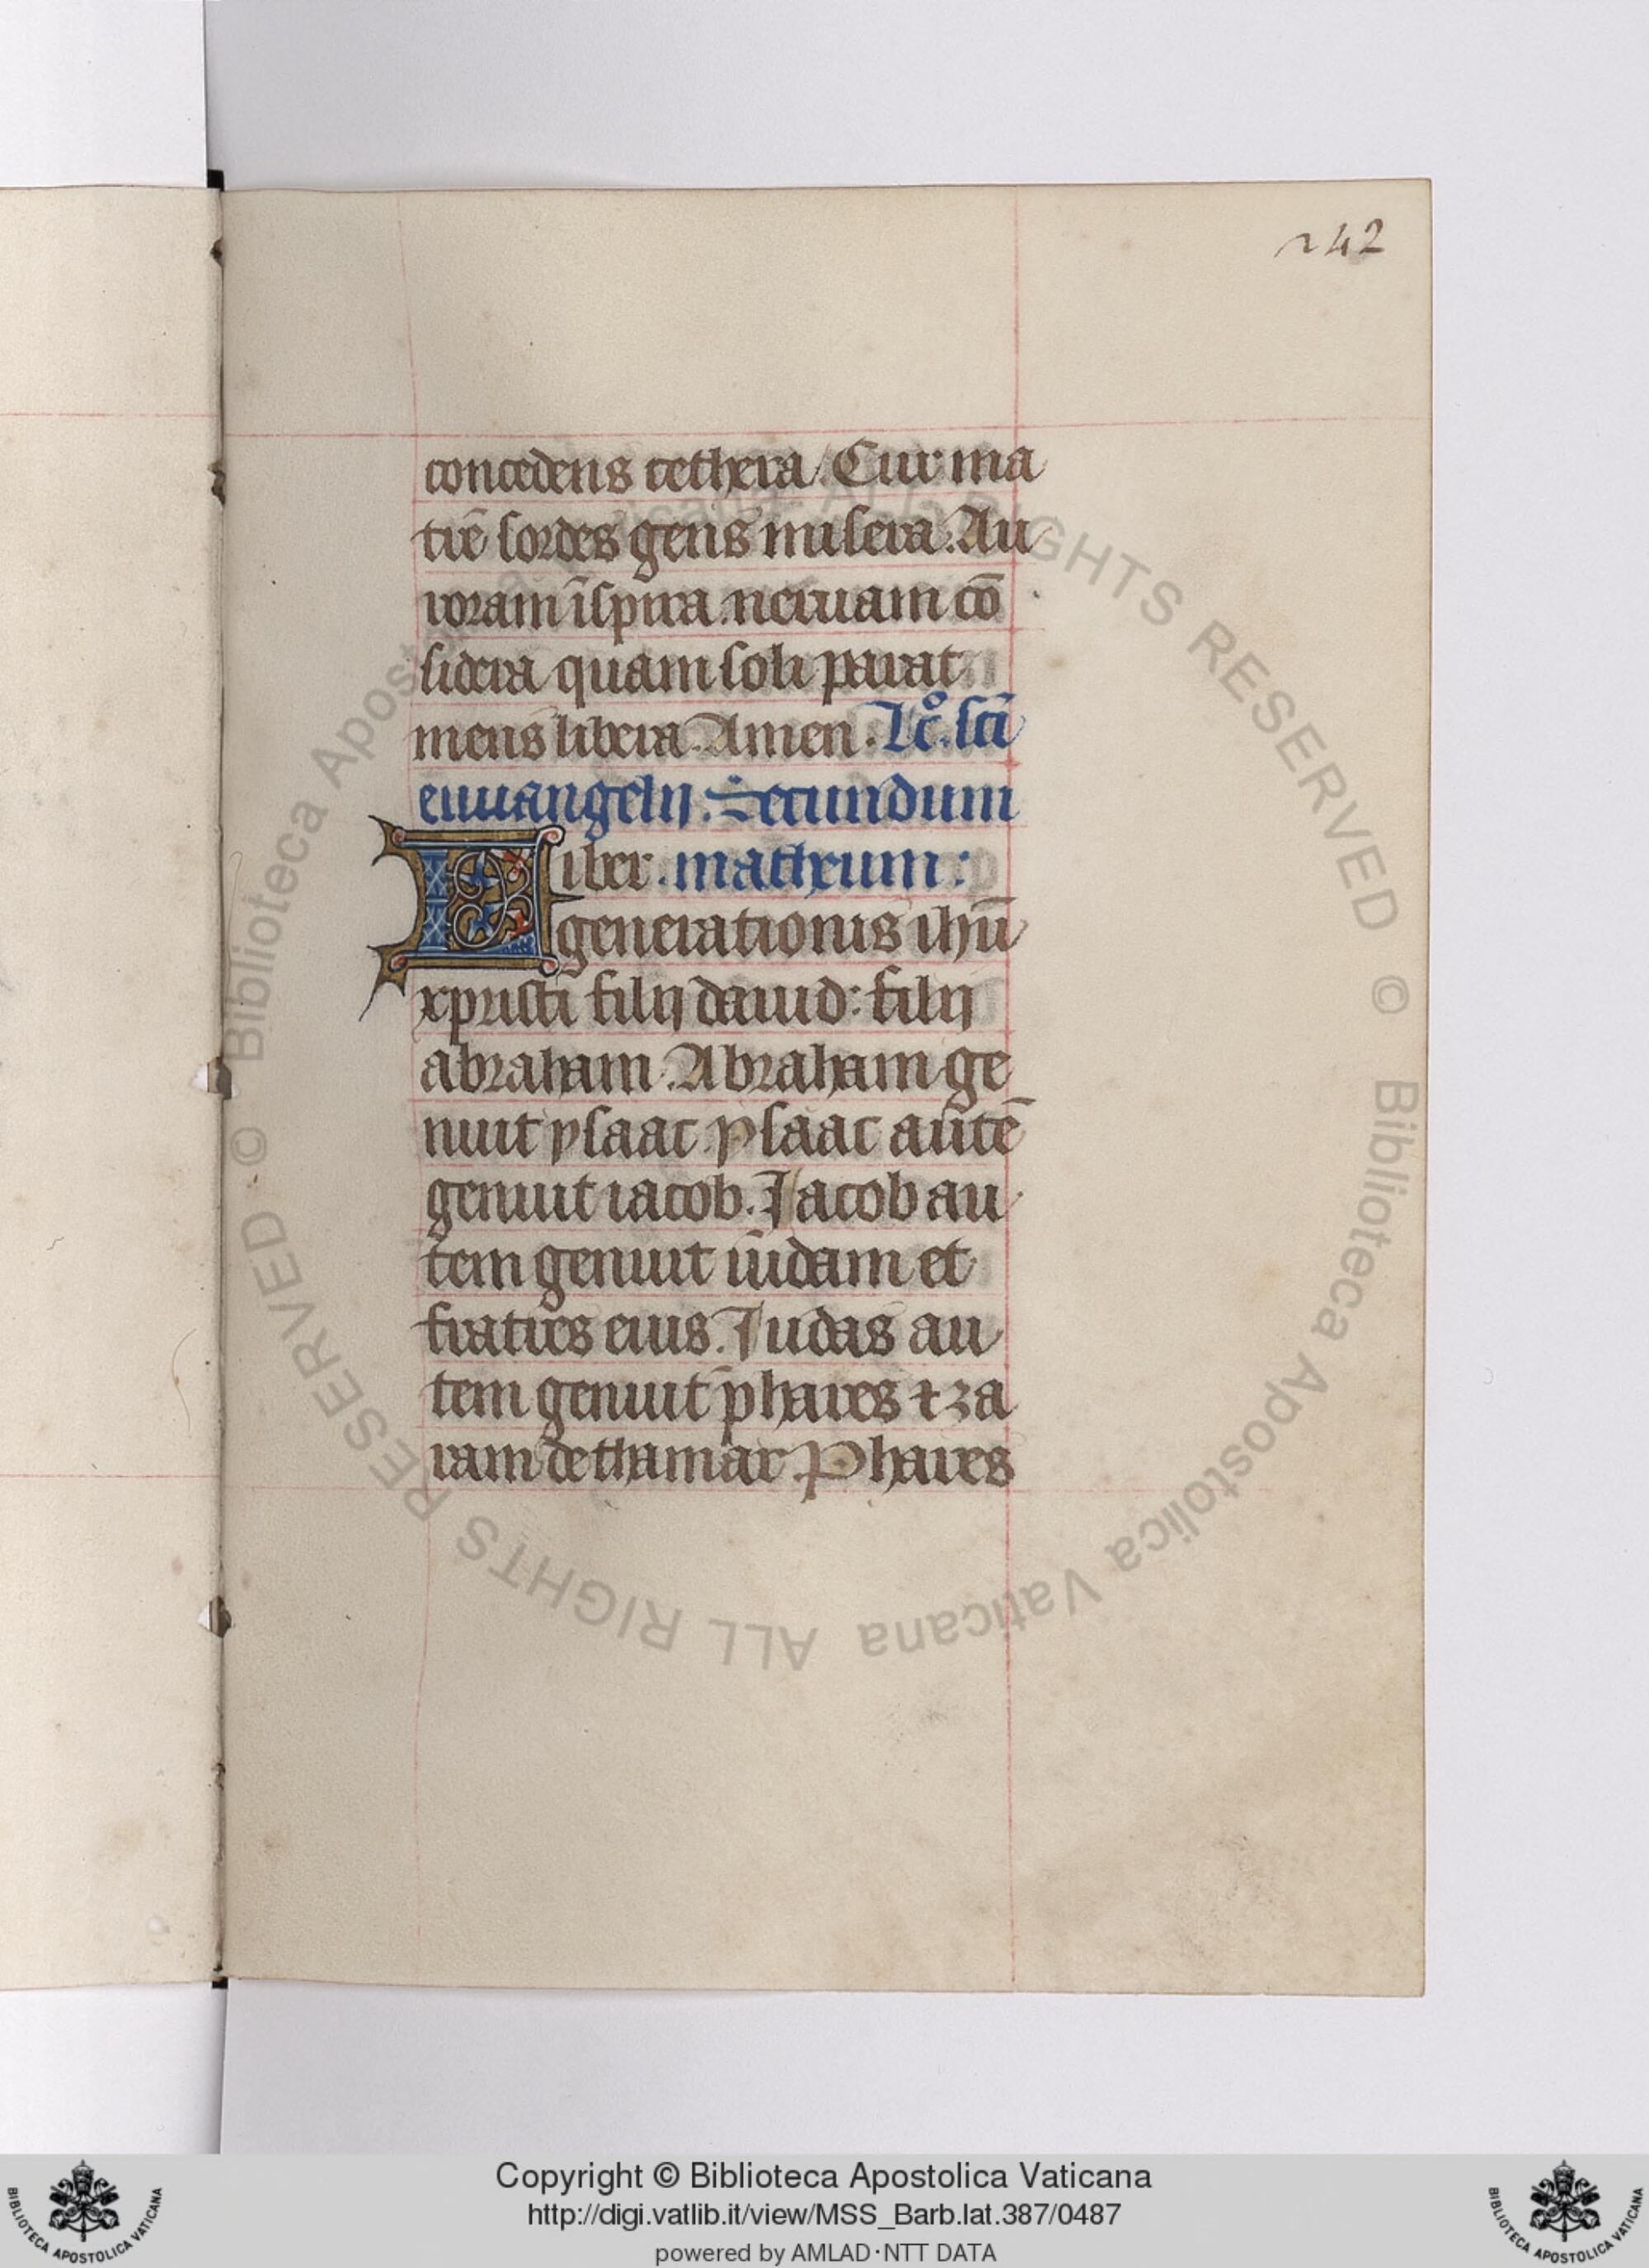 242
concedens cethera. Cur ma
trē sordes gens misera. Au
roram īspira. neruam cō
sidera quam soli parat
mens libera. Amen. Lc̄o. sc̄i
euuangelij. Secundum
Liber. matheum:
generationis ihū
xpristi filij dauid: filij
abraham. Abraham ge
nuit ysaac. ysaac autē
genuit iacob. Jacob au
tem genuit iudam et
fratres eius. Judas au
tem genuit phares ⁊ za
ram de thamar. Phares
© Biblioteca Apostolica Vaticana ALL RIGHTS RESERVED © Biblioteca Apostolica Vaticana ALL RIGHTS RESERVED
Copyright © Biblioteca Apostolica Vaticana
http://digi.vatlib.it/view/MSS_Barb.lat.387/0487
powered by AMLAD·NTT DATA
BIBLIOTECA APOSTOLICA VATICANA
BIBLIOTECA APOSTOLICA VATICANA